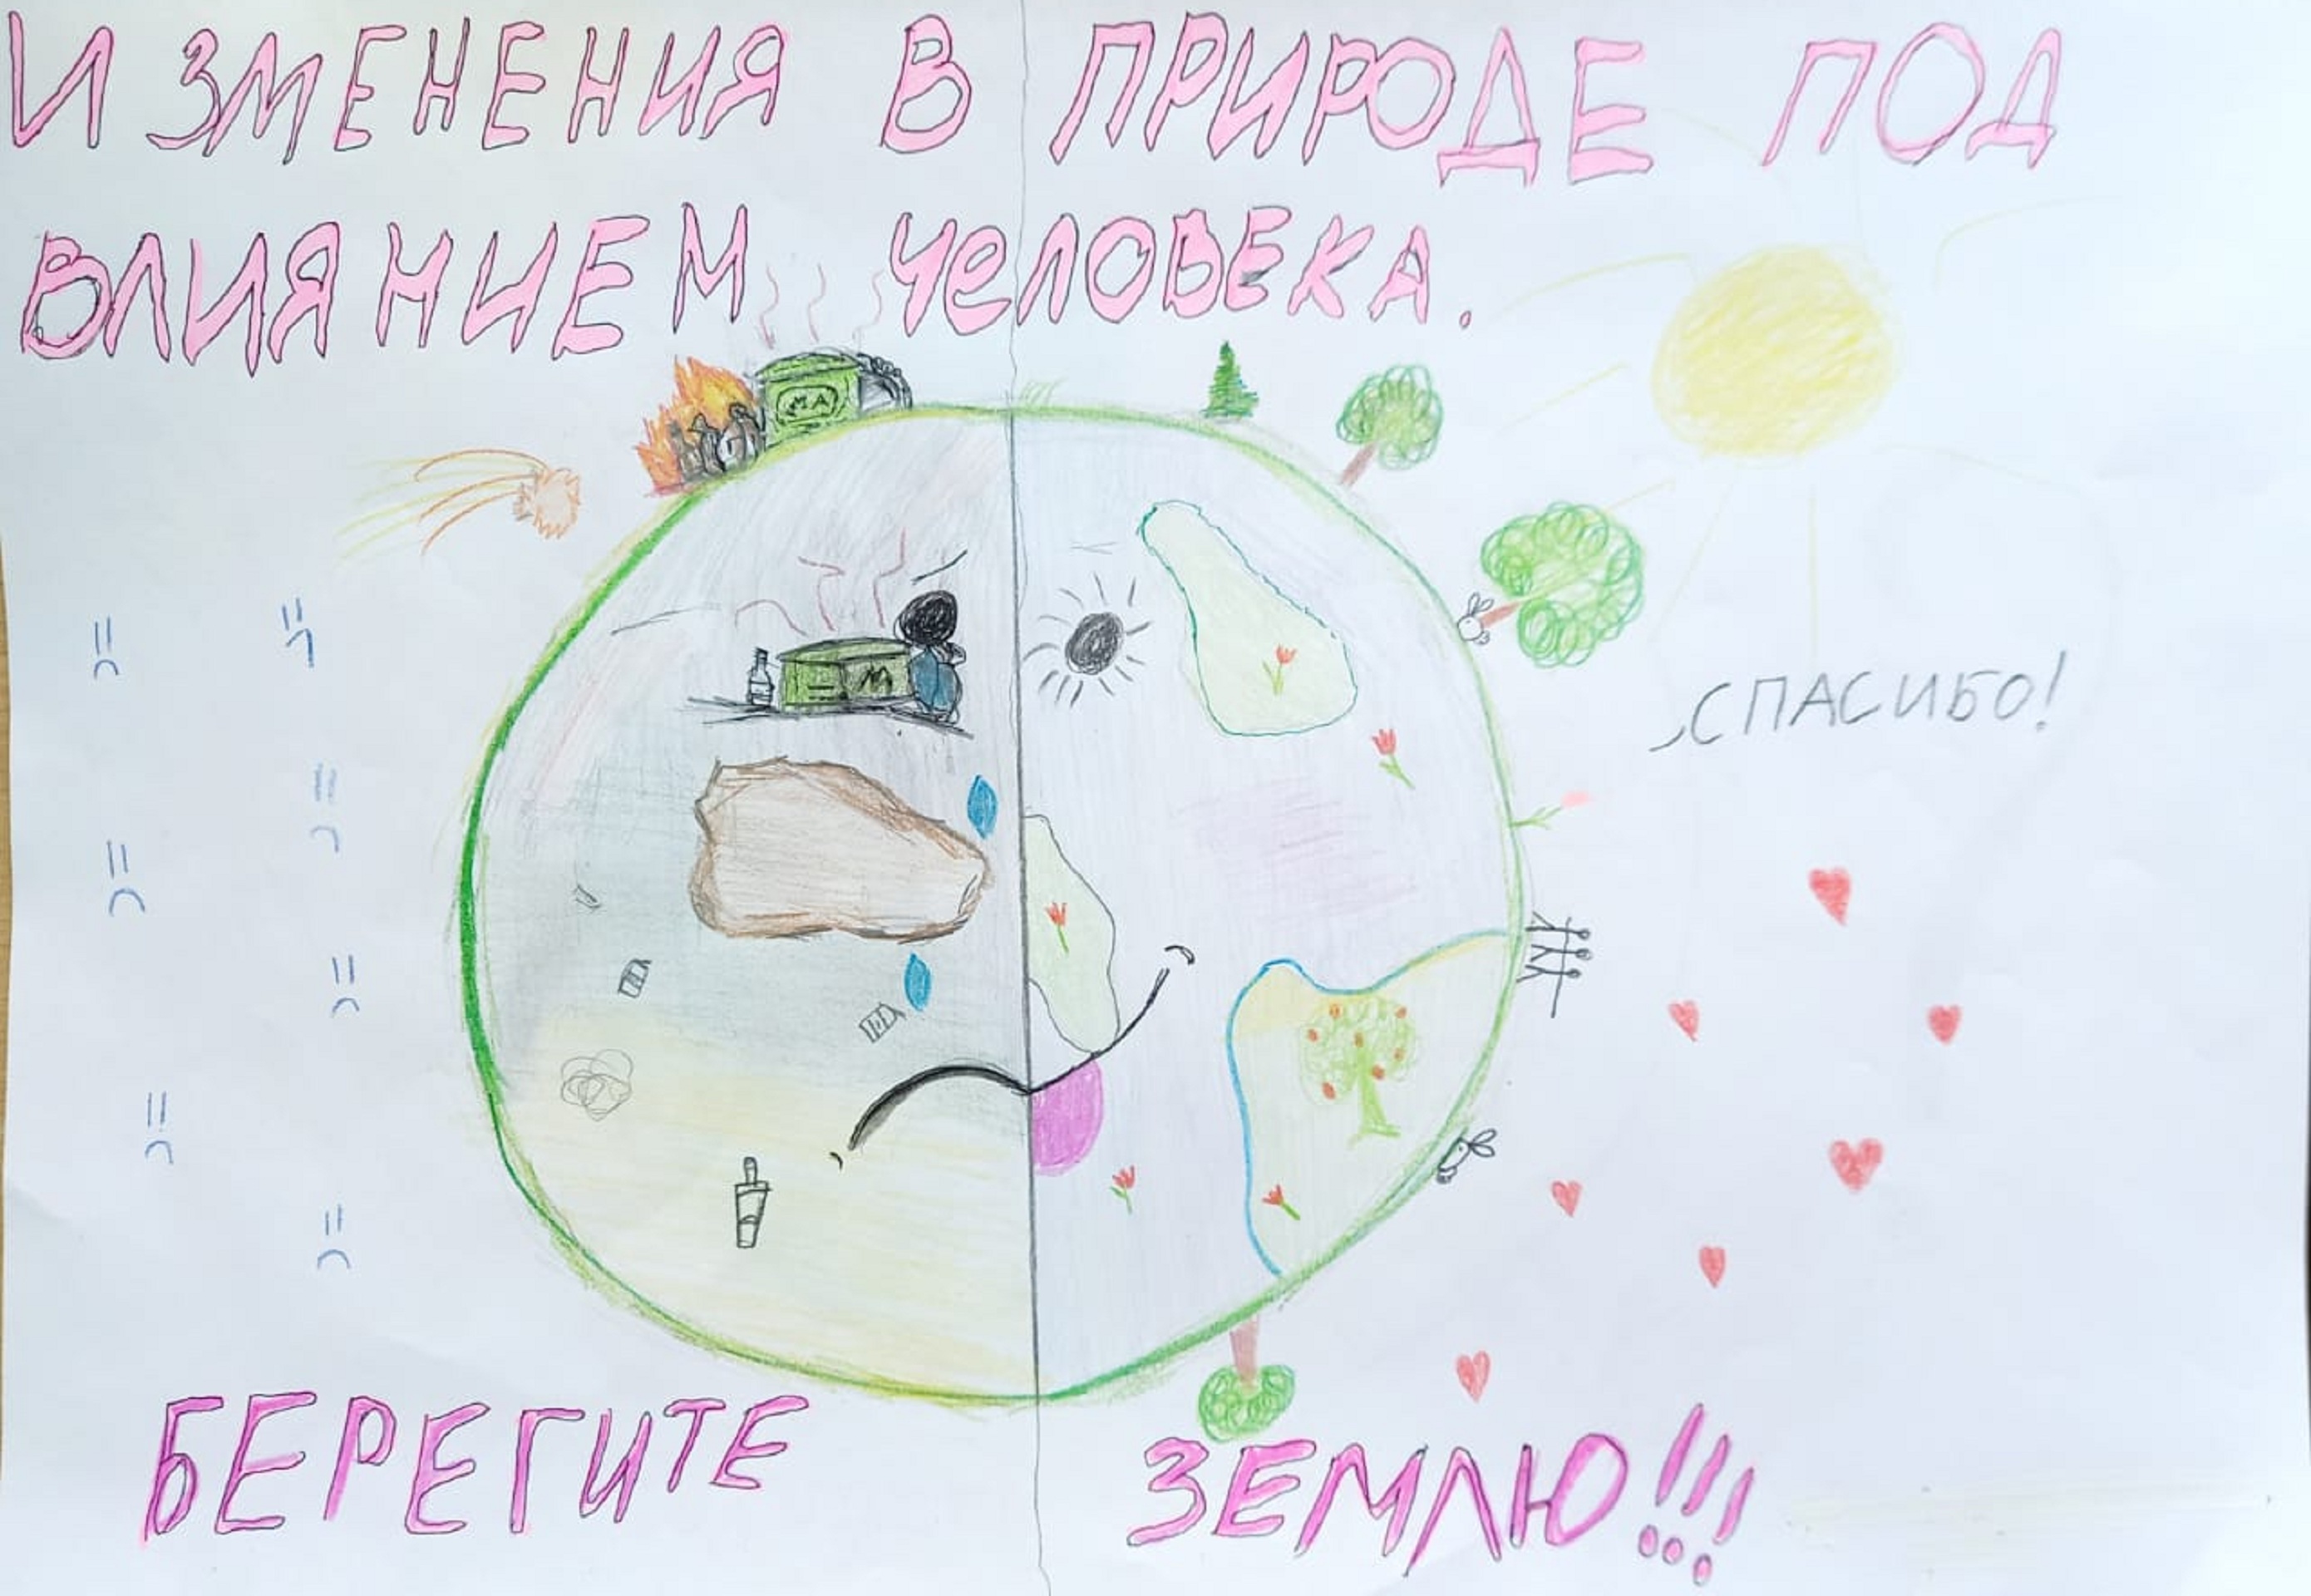 ИЗМЕНЕНИЯ В ПРИРОДЕ ПОД
ВЛИЯНИЕМ ЧеЛОВЕКА.
МА
М
СПАСИБО!
БЕРЕГИТЕ ЗЕМЛЮ!!!